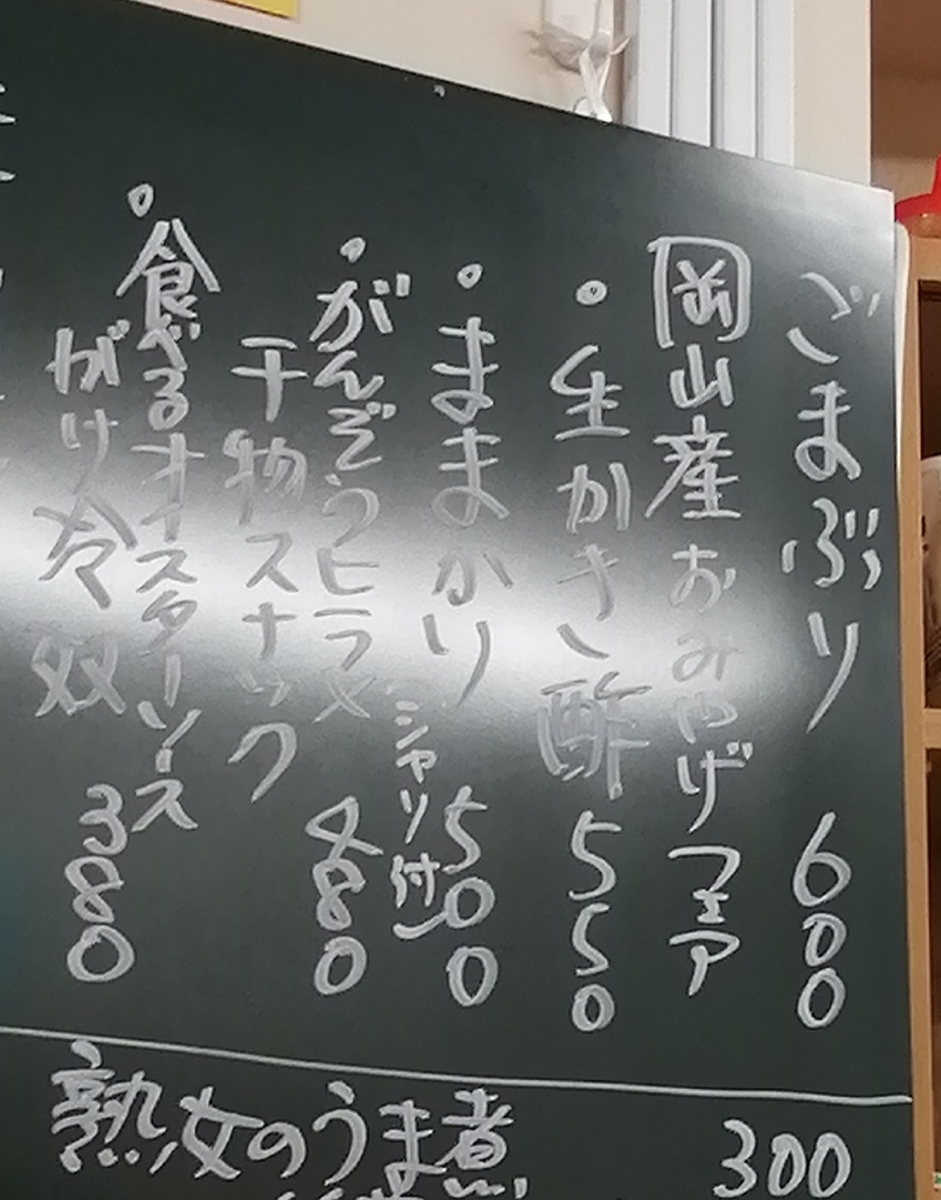 ごまぶり 600
岡山産おみやげフェア
・生かき酢 550
・ままかり 500
シャリ付
・がんぞうヒラメ
干物スナック 480
・食べるオイスターソース
がけ冷奴 380
熟女のうま煮 300